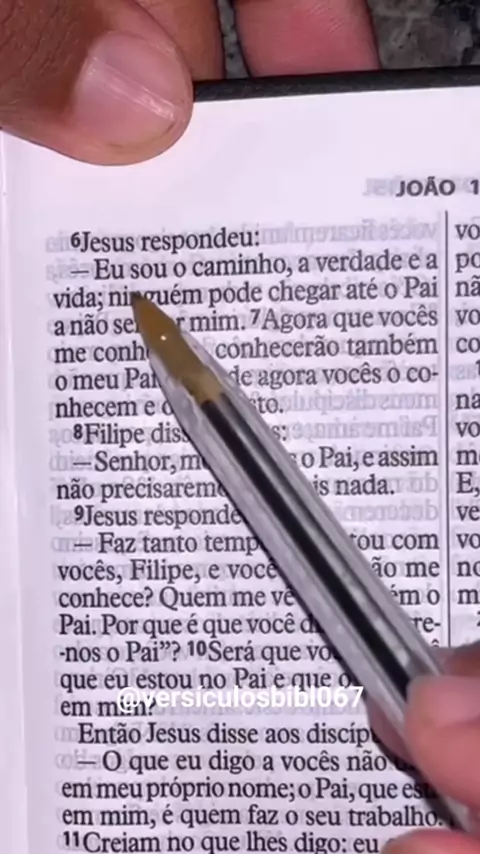 JOÃO 1
6Jesus respondeu:
— Eu sou o caminho, a verdade e a
vida; ninguém pode chegar até o Pai
a não ser mim. 7Agora que vocês
me conh conhecerão também
o meu Pai de agora vocês o co-
nhecem e o sto.
8Filipe diss s:
— Senhor, m o Pai, e assim
não precisaremo is nada.
9Jesus responde
— Faz tanto temp tou com
vocês, Filipe, e você ão me
conhece? Quem me vê ém o
Pai. Por que é que você d re-
-nos o Pai”? 10Será que vo ê
que eu estou no Pai e que o
em mim?
@versiculosbibl067
Então Jesus disse aos discíp
— O que eu digo a vocês não
em meu próprio nome; o Pai, que est
em mim, é quem faz o seu trabalho.
11Creiam no que lhes digo: eu
vo
po
nã
vo
co
na
vo
m
E,
ve
vo
no
m